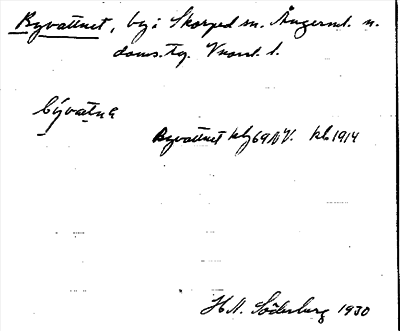 Byvattnet, by i Skorped sn. Ångerml. n.
doms.tg. Vnorrl. l.
bývatna
Byvattnet kbj 69 NV. kb 1914
H. N. Söderberg 1930